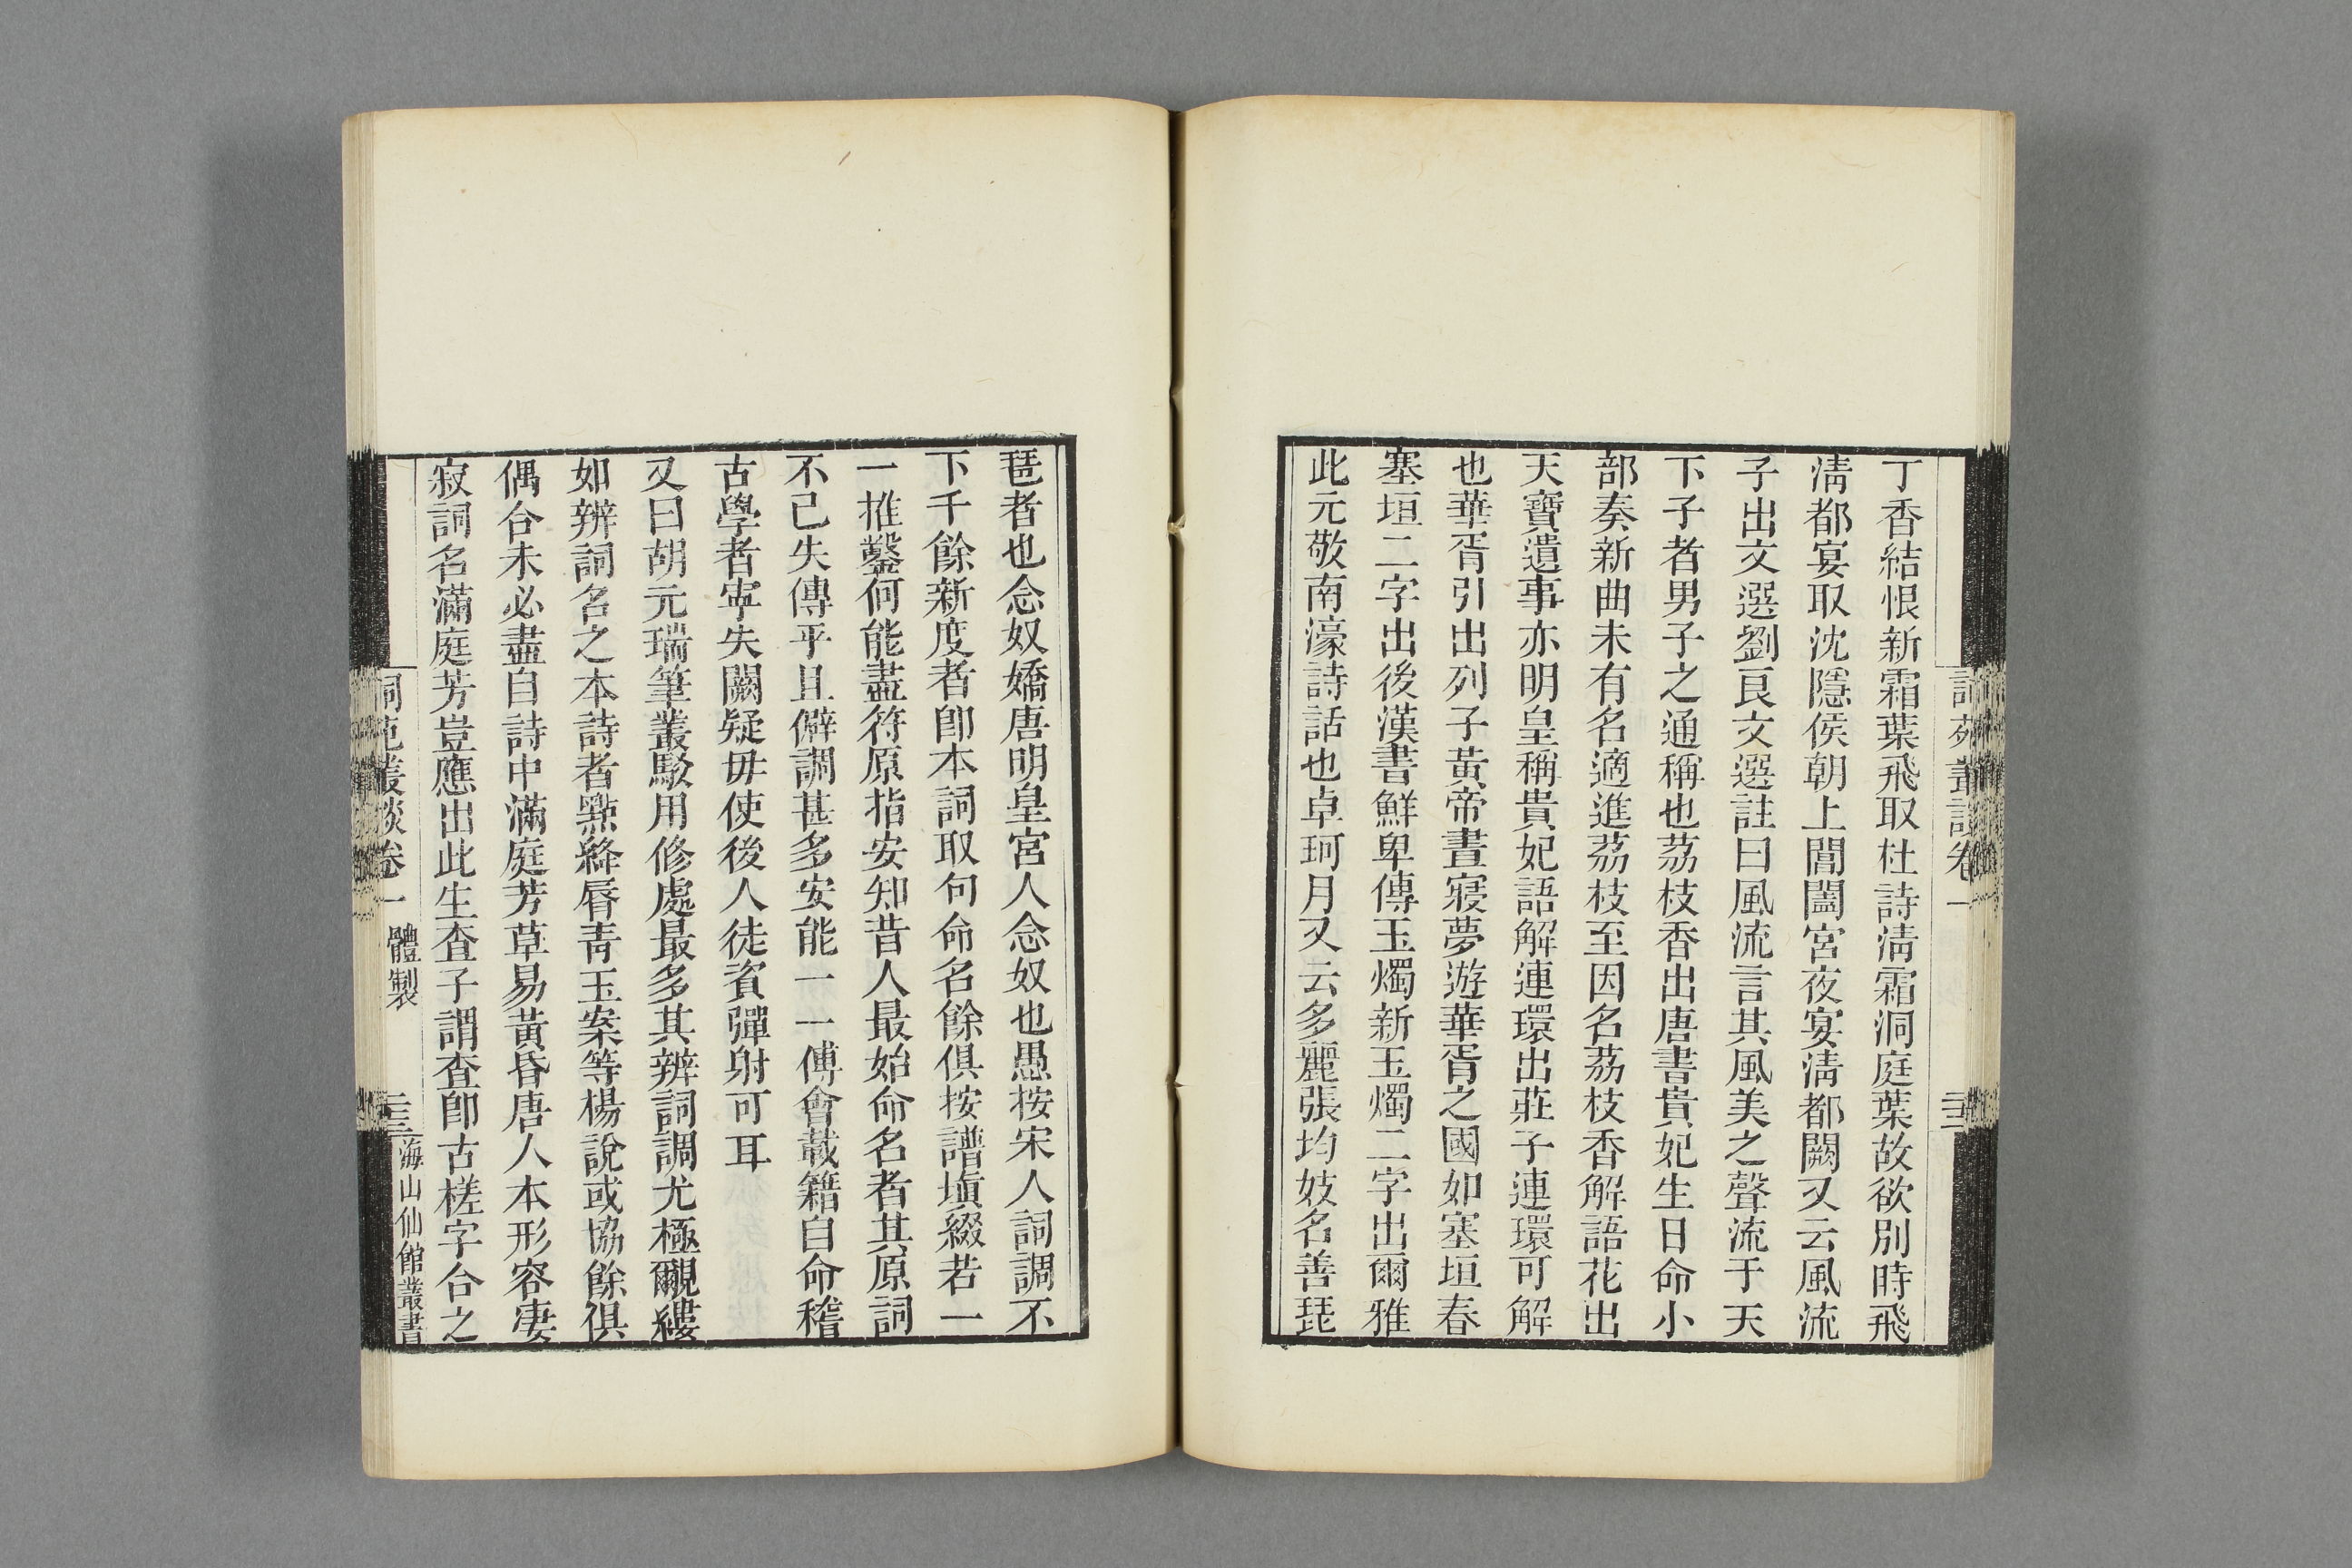 詞苑叢談卷一
丁香結恨新霜葉飛取杜詩清霜洞庭葉故欲別時飛
清都宴取沈隱侯朝上閶闔宮夜宴清都闕又云風流
子出文選劉良文選註曰風流言其風美之聲流于天
下子者男子之通稱也荔枝香出唐書貴妃生日命小
部奏新曲未有名適進荔枝至因名荔枝香解語花出
天寶遺事亦明皇稱貴妃語解連環出莊子連環可解
也華胥引出列子黃帝晝寢夢遊華胥之國如塞垣春
塞垣二字出後漢書鮮卑傳玉燭新玉燭二字出爾雅
此元敬南濠詩話也卓珂月又云多麗張均妓名善琵
琶者也念奴嬌唐明皇宮人念奴也愚按宋人詞調不
下千餘新度者卽本詞取句命名餘俱按譜塡綴若一
一推鑿何能盡符原指安知昔人最始命名者其原詞
不已失傳乎且僻調甚多安能一一傅會載籍自命稽
古學者寧失闕疑毋使後人徒資彈射可耳
又曰胡元瑞筆叢駁用修處最多其辨詞調尤極覼縷
如辨詞名之本詩者點絳脣青玉案等楊說或協餘俱
偶合未必盡自詩中滿庭芳草易黃昏唐人本形容淒
寂詞名滿庭芳豈應出此生查子謂查卽古槎字合之
詞苑叢談卷一 體製 三 海山仙館叢書